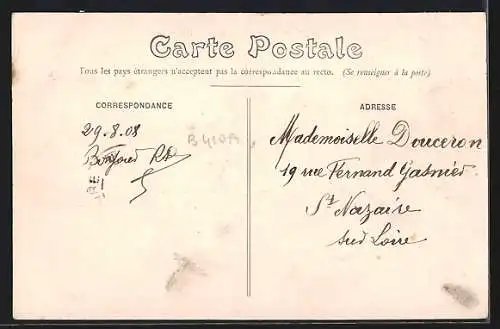 Carte Postale
Tous les pays étrangers n'acceptent pas la correspondance au recto. (Se renseigner à la poste)
CORRESPONDANCE
ADRESSE
29-8-08
B410A
Mademoiselle Douceron
19 rue Fernand Gasnier
St Nazaire
sud Loire